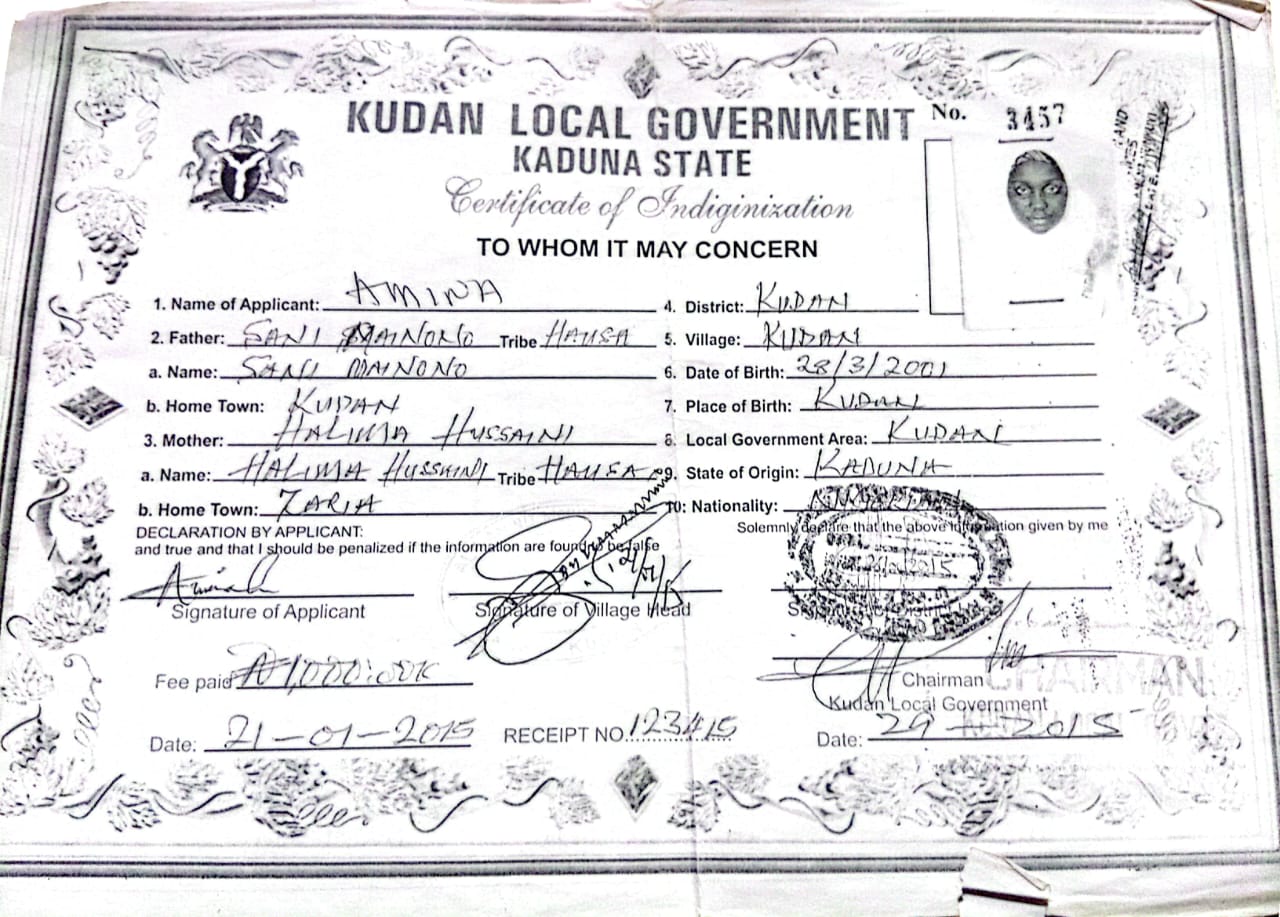 KUDAN LOCAL GOVERNMENT
No. 3457
KADUNA STATE
Certificate of Indiginization
TO WHOM IT MAY CONCERN
1. Name of Applicant: AMINA
4. District: KUDAN
2. Father: SANI MAINONO Tribe HAUSA
5. Village: KUDAN
a. Name: SANI MAINONO
6. Date of Birth: 28/3/2001
b. Home Town: KUDAN
7. Place of Birth: KUDAN
3. Mother: HALIMA HUSSAINI
8. Local Government Area: KUDAN
a. Name: HALIMA HUSSAINI Tribe HAUSA
9. State of Origin: KADUNA
b. Home Town: ZARIA
10: Nationality:
DECLARATION BY APPLICANT:
Solemnly declare that the above information given by me
and true and that I should be penalized if the information are found to be false
Amina
Signature of Applicant
Signature of Village Head
Fee paid ₦1,000:00K
Chairman
CHAIRMAN
Kudan Local Government
Date: 21-01-2015
RECEIPT NO. 123415
Date: 29 2015